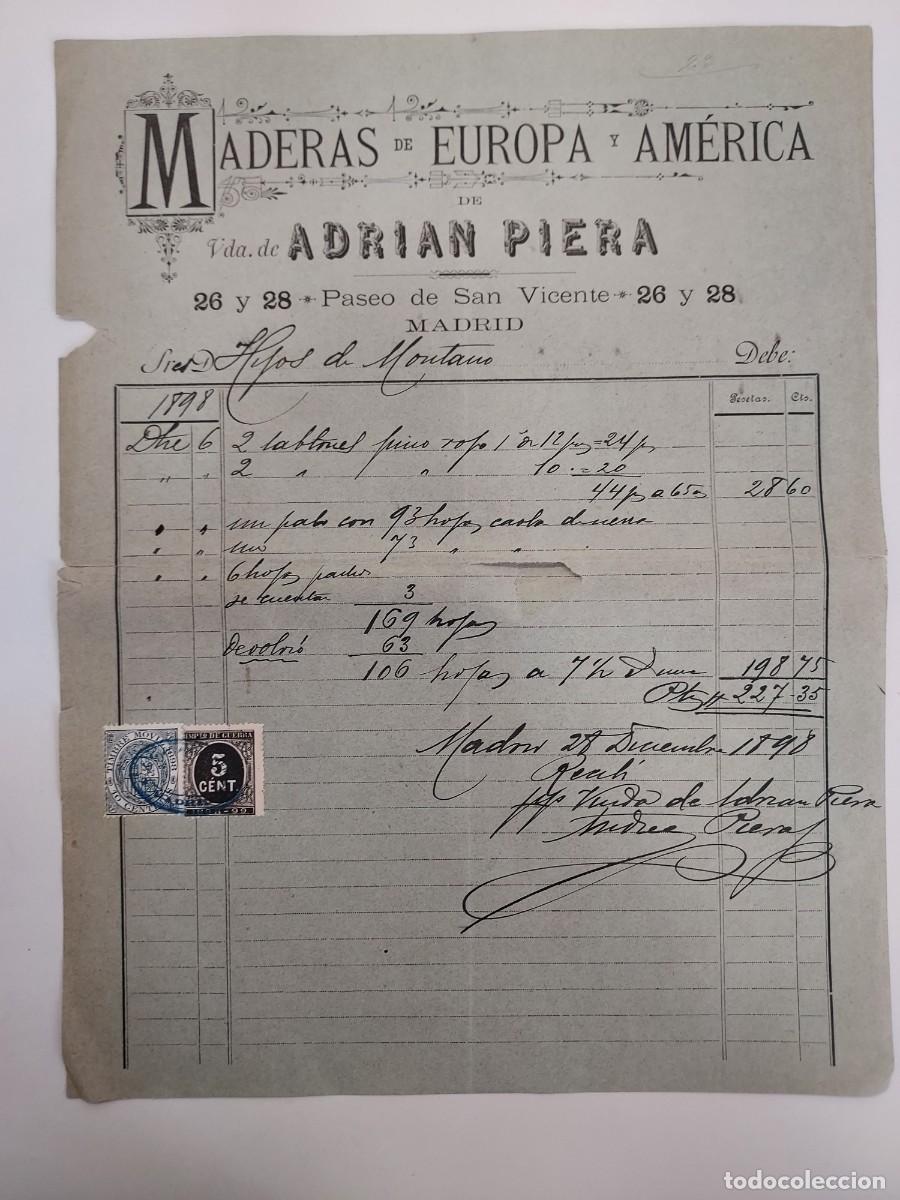 22
MADERAS DE EUROPA Y AMÉRICA
DE
Vda. de ADRIAN PIERA
26 y 28 Paseo de San Vicente 26 y 28
MADRID
Sres D Hijos de Montano Debe:
1898 Pesetas. Cts.
Dbre 6 2 tablones pino rojo 1ª de 12 = 24
" " 2 " " 10 . = 20
44 ps a 65 28 60
" " un palo con 93 hojas caoba de
" " uno 73 " "
" " 6 hojas
se cuentan 3
169 hojas
devolvió 63
106 hojas a 7 1/2 198 75
Ptas 227-35
TIMBRE MOVIL 1898
10 CENT
IMPTO DE GUERRA
5
CENT.
1898-99
Madrid 28 Diciembre 1898
Recibí
pp Viuda de Adrian Piera
Andrea Piera
todocoleccion